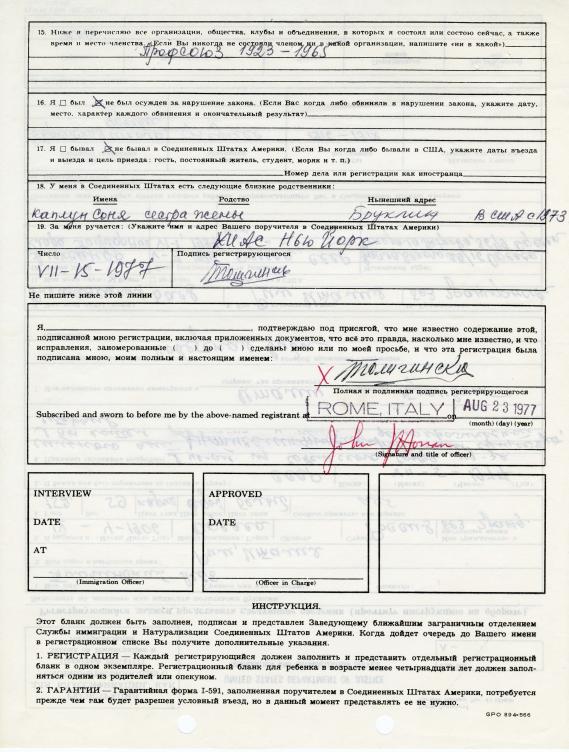 15. Ниже я перечисляю все организации, общества, клубы и объединения, в которых я состоял или состою сейчас, а также
время и место членства. (Если Вы никогда не состояли членом ни в какой организации, напишите «ни в какой»)
Профсоюз 1923-1965
16. Я ☐ был ☒ не был осужден за нарушение закона. (Если Вас когда либо обвиняли в нарушении закона, укажите дату,
место, характер каждого обвинения и окончательный результат)
17. Я ☐ бывал ☒ не бывал в Соединенных Штатах Америки. (Если Вы когда либо бывали в США, укажите даты въезда
и выезда и цель приезда: гость, постоянный житель, студент, моряк и т. п.)
Номер дела или регистрации как иностранца
18. У меня в Соединенных Штатах есть следующие близкие родственники:
Имена Родство Нынешний адрес
Каплун Соня сестра жены Бруклин В США с 1973
19. За меня ручается: (Укажите имя и адрес Вашего поручителя в Соединенных Штатах Америки)
ХИАС Нью Йорк
Число Подпись регистрирующегося
VII-15-1977
Не пишите ниже этой линии
Я, , подтверждаю под присягой, что мне известно содержание этой,
подписанной мною регистрации, включая приложенных документов, что всё это правда, насколько мне известно, и что
исправления, заномерованные ( ) до ( ) сделаны мною или по моей просьбе, и что эта регистрация была
подписана мною, моим полным и настоящим именем:
X
Полная и подлинная подпись регистрирующегося
Subscribed and sworn to before me by the above-named registrant at ROME, ITALY on AUG 23 1977
(month) (day) (year)
John
(Signature and title of officer)
INTERVIEW APPROVED
DATE DATE
AT
(Immigration Officer) (Officer in Charge)
ИНСТРУКЦИЯ.
Этот бланк должен быть заполнен, подписан и представлен Заведующему ближайшим заграничным отделением
Службы иммиграции и Натурализации Соединенных Штатов Америки. Когда дойдет очередь до Вашего имени
в регистрационном списке Вы получите дополнительные указания.
1. РЕГИСТРАЦИЯ — Каждый регистрирующийся должен заполнить и представить отдельный регистрационный
бланк в одном экземпляре. Регистрационный бланк для ребенка в возрасте менее четырнадцати лет должен запол-
няться одним из родителей или опекуном.
2. ГАРАНТИИ — Гарантийная форма I-591, заполненная поручителем в Соединенных Штатах Америки, потребуется
прежде чем там будет разрешен условный въезд, но в данный момент представлять ее не нужно.
GPO 894-566